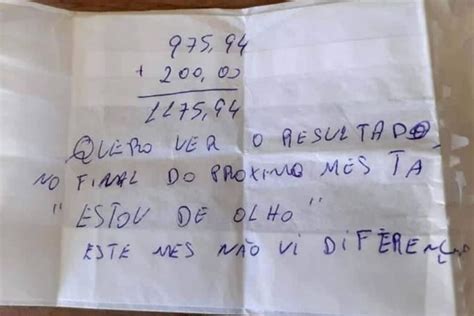 975,94
+ 200,00
1175,94
QUERO VER O RESULTADO,
NO FINAL DO PROXIMO MES TA
"ESTOU DE OLHO"
ESTE MES NÃO VI DIFERENÇA